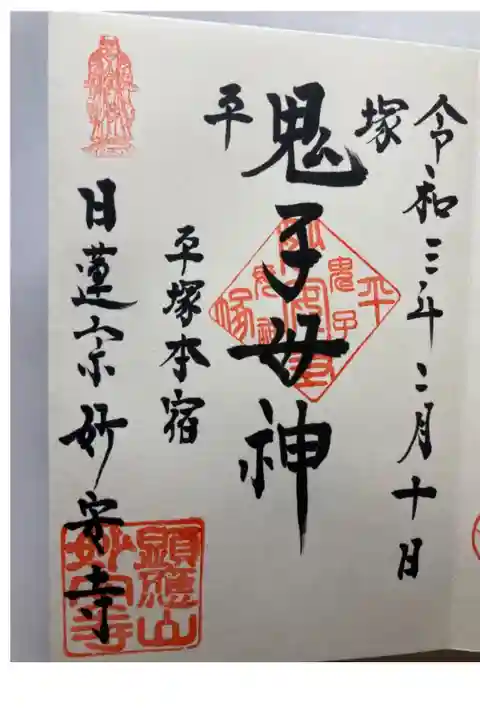 令和三年二月十日
平塚
鬼子母神
平塚本宿
日蓮宗妙安寺
平塚
鬼子
母神
顯應山
妙安寺